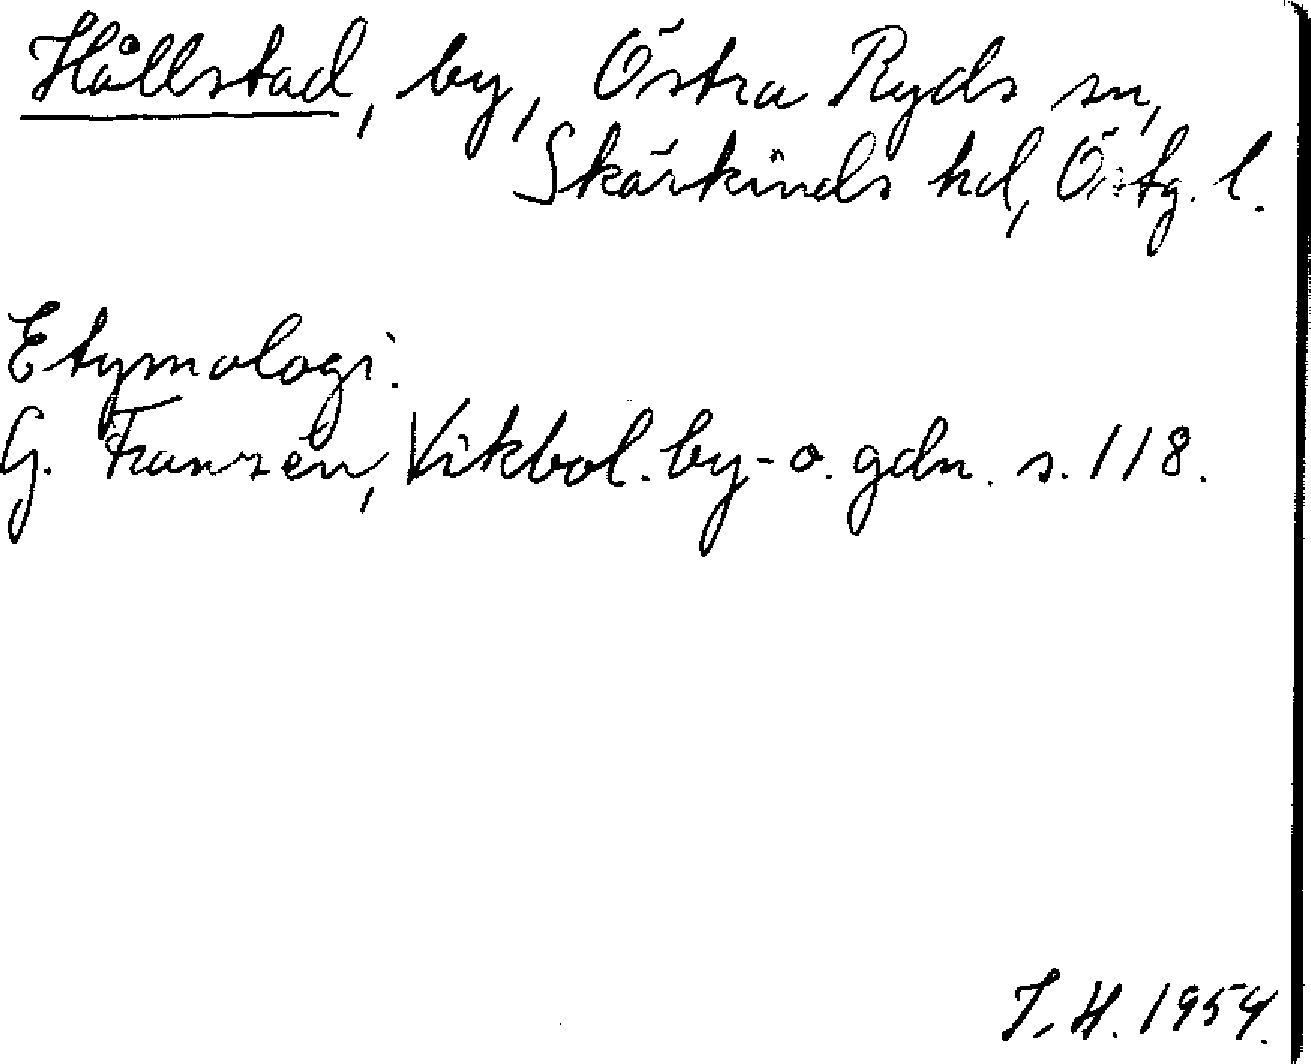 Hållstad, by, Östra Ryds sn,
Skärkinds hd, Östg. l.
Etymologi.
G. Franzén, Vikbol. by- o. gdn. s. 118.
J. H. 1954.